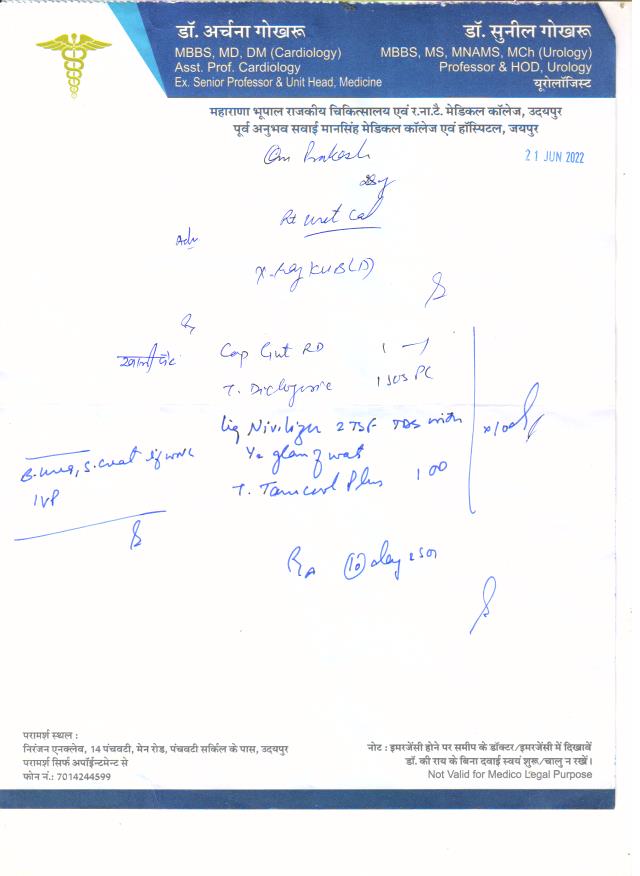 डॉ. अर्चना गोखरू
MBBS, MD, DM (Cardiology)
Asst. Prof. Cardiology
Ex. Senior Professor & Unit Head, Medicine
डॉ. सुनील गोखरू
MBBS, MS, MNAMS, MCh (Urology)
Professor & HOD, Urology
यूरोलॉजिस्ट
महाराणा भूपाल राजकीय चिकित्सालय एवं र.ना.टै. मेडिकल कॉलेज, उदयपुर
पूर्व अनुभव सवाई मानसिंह मेडिकल कॉलेज एवं हॉस्पिटल, जयपुर
Om Prakash
21 JUN 2022
Rt uret Cal
Adv
X-Ray KUB (D)
खाली पेट
Cap Gut RD 1
T. Diclogesic 1 SOS PC
Liq 2 TSF TDS with
½ glan of wat
B. urea, S. creat
IVP
T. Plus 1 OD
10 day
परामर्श स्थल :
निरंजन एनक्लेव, 14 पंचवटी, मेन रोड, पंचवटी सर्किल के पास, उदयपुर
परामर्श सिर्फ अपॉईन्टमेन्ट से
फोन नं.: 7014244599
नोट : इमरजेंसी होने पर समीप के डॉक्टर/इमरजेंसी में दिखावें
डॉ. की राय के बिना दवाई स्वयं शुरू/चालु न रखें।
Not Valid for Medico Legal Purpose